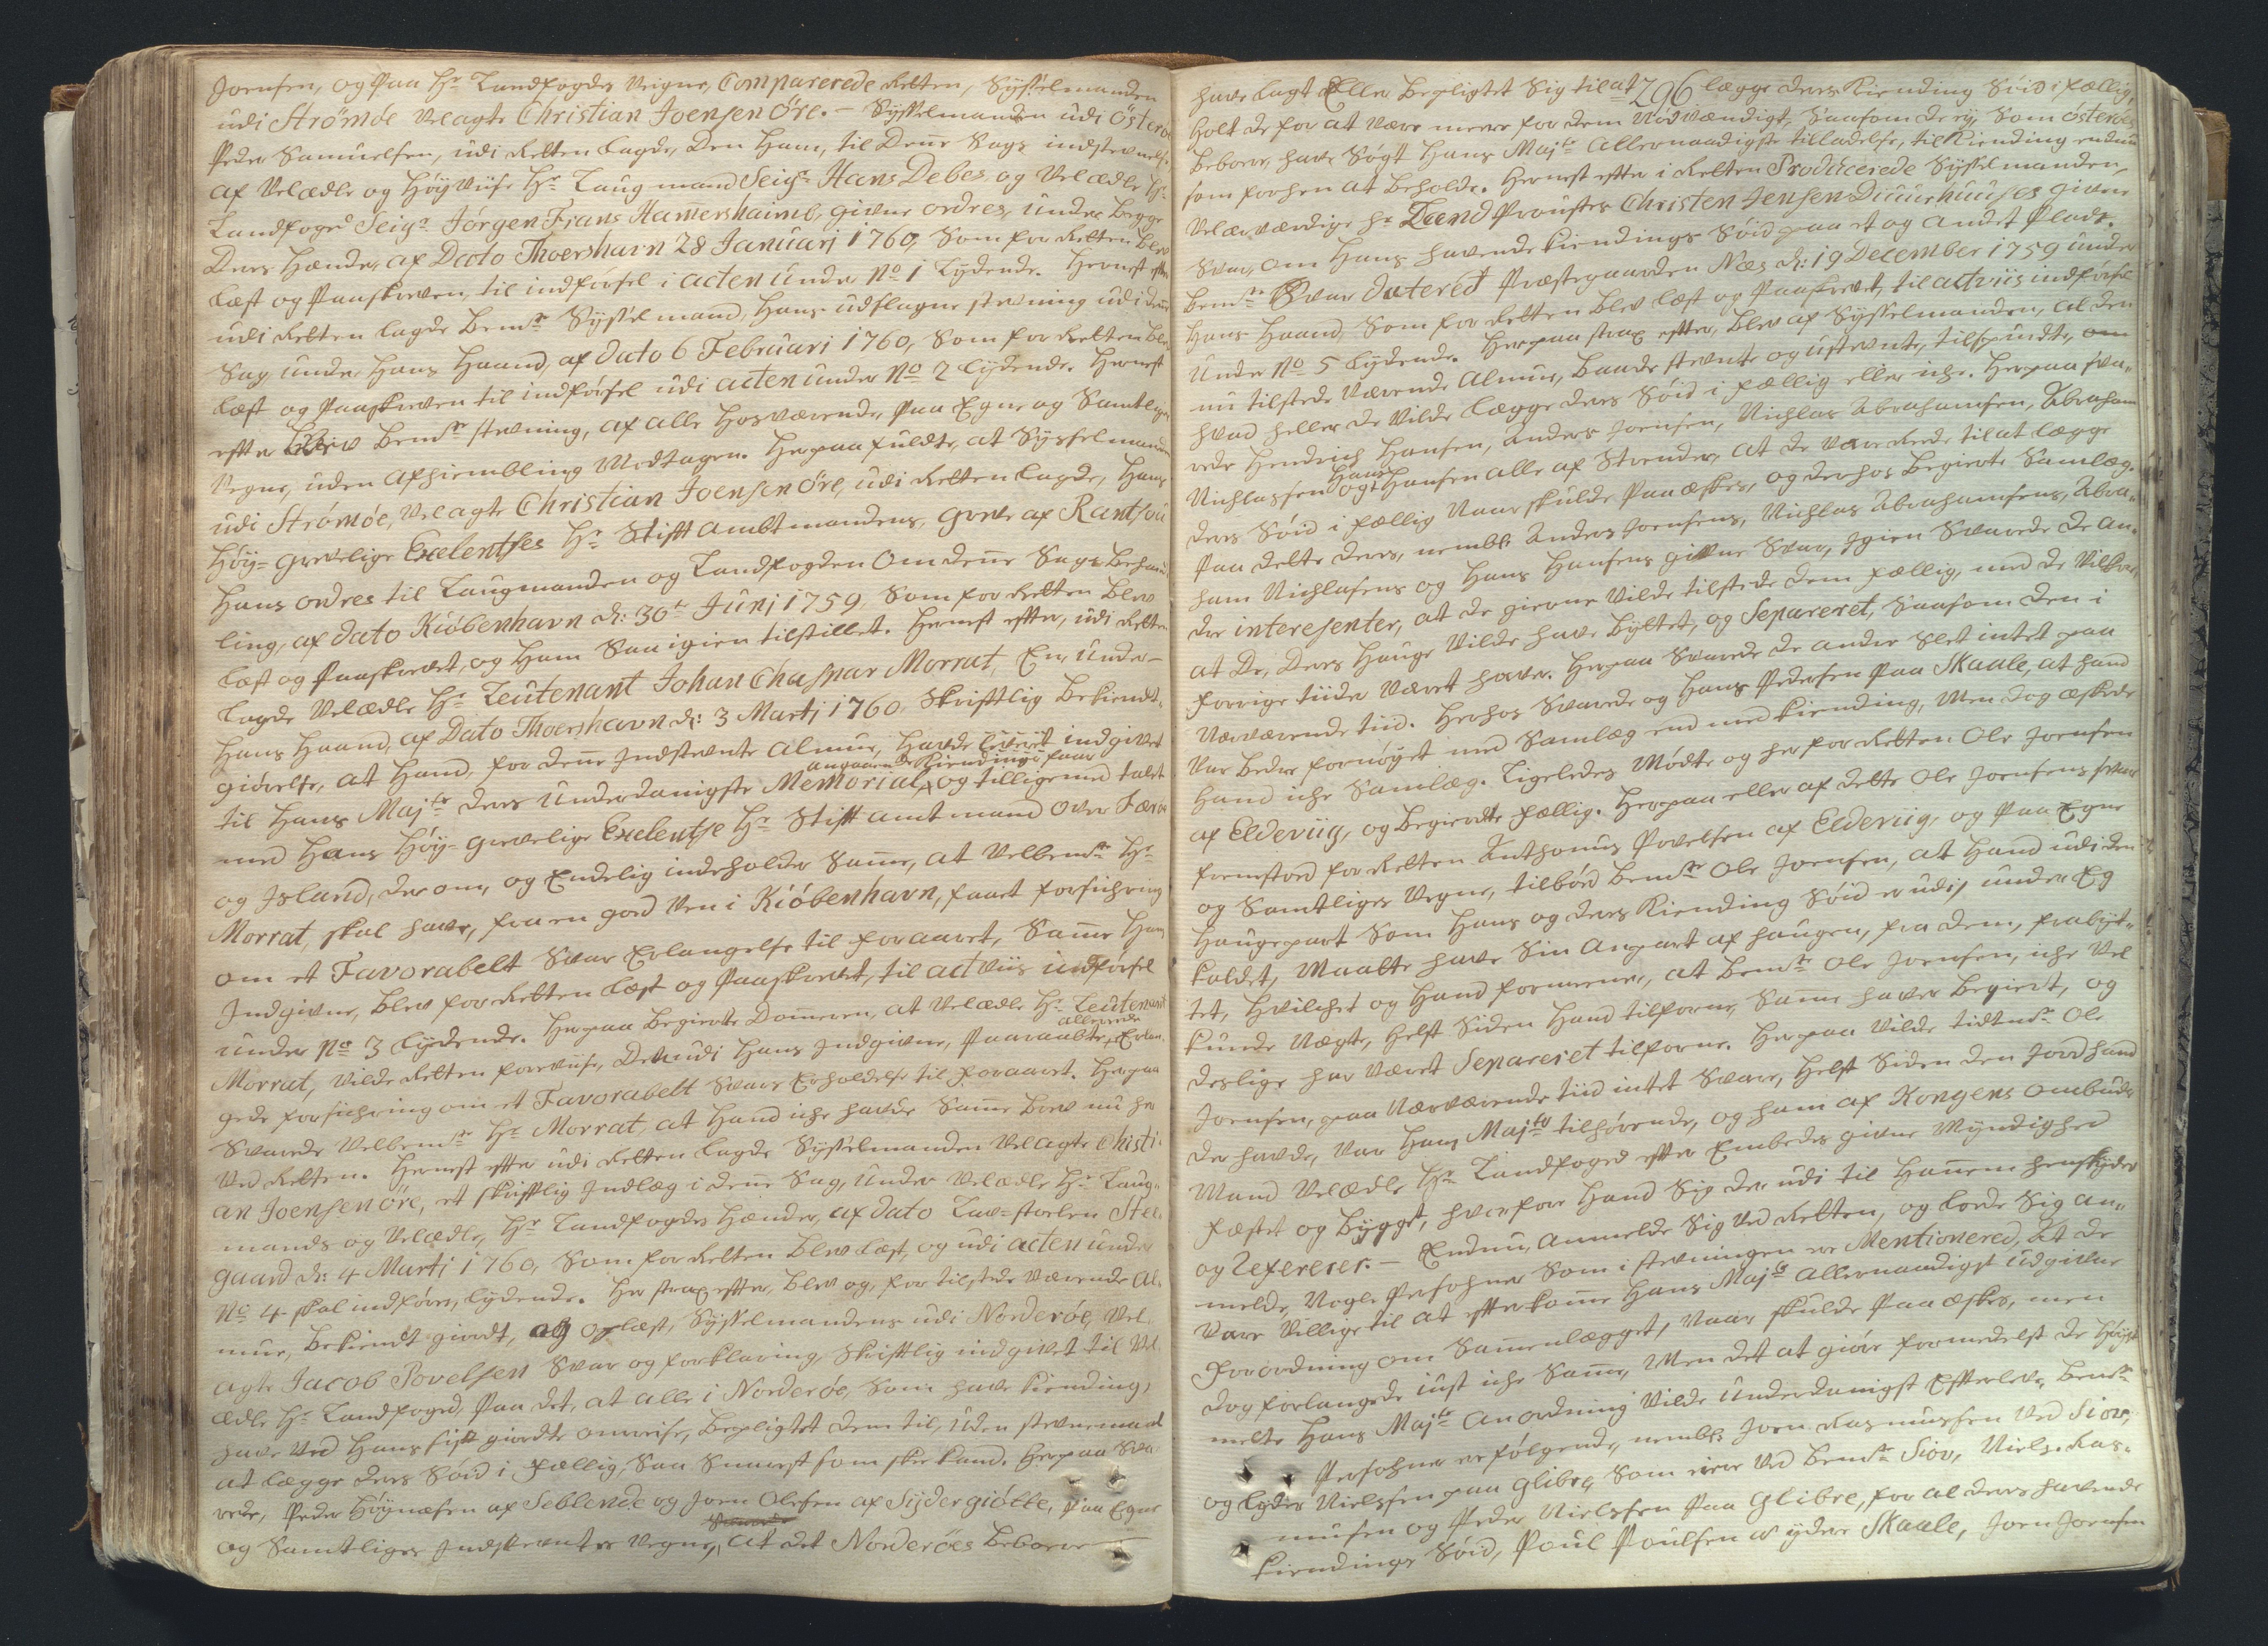 Joensen, og Paa Hr Landfogdes Veigne, Comparerede Retten, Sysselmanden
udi Strömöe Velagte Christian Joensen Öre. - Sysselmanden udi Österöe
Peder Samuelsen, udi Retten lagde, den ham, til denne Sags indstevnelse
af Velædle og Høyviise Hr Laugmand Seigr Hans Debes og Velædle Hr
Landfoget Seigr Jörgen Frans Hamershaimb, givne ordres, under begge
deres hænder, af Dato Thorshavn 28 Januarj 1760, som for Retten blev
læst og Paaskreven, til indførsel i acten under No 1 lydende. Hernest efter
udi Retten lagde bemte Sysselmand, hans udstagne stevning udi denne
Sag, under hans haand, af Dato 6 Februari 1760, som for Retten blev
læst og Paaskreven til indførsel udi acten under No 2 lydende. Hernest
efter blev bemte stevning, af alle hosværende, paa Egne og Samtliges
Vegne, uden afhiembling vedtagen. Herpaa fuldte, at Sysselmanden
udi Strömöe, Velagte Christian Joensen Öre, udi Retten lagde, hans
Höy-Grevelige Excelentses Hr Stift Ambtmandens, Greve af Rantsou
hans ordres til Laugmanden og Landfogden om denne Sags behand-
ling, af Dato Kiöbenhavn d: 30te Junj 1759, som for Retten blev
læst og Paaskrevet, og ham Saa igien tilstillet. Hernest efter, udi Retten
lagde Velædle Hr Leutenant Johan Chaspar Morrat, En, under
hans haand, af Dato Thorshavn d: 3 Martj 1760, skriftlig bekiendt-
giørelse, at hand, for denne indstevnte almue, havde leveret indgivet
angaaende Kiendings faar
til hans Majts deres underdanigste Memorial, og tilligemed talet
med hans Høy-grevelige Excelentse Hr Stift amtmand over Færøe
og Island, der om, og Endelig indeholder Samme, at Velbemte Hr
Morrat, skal have, fra en god Ven i Kiöbenhavn, faaet forsichring
om et Favorabelt Svar Erlangelse til foraaret, Samme hans
Indgivne, blev for Retten læst og Paaskrevet, til actviis indførsel
under No 3 lydende. Herpaa begierte Dommeren, at Velædle Hr Leutenant
allerede
Morrat, vilde Retten foreviise, den udi hans indgivne, Paaraabte, Erlan-
gede forsichring om et Favorabelt Svars Erholdelse til foraaret. Herpaa
Svarede Velbemte Hr Morrat, at hand iche havde Samme brev nu her
ved Retten. Hernest efter udi Retten lagde Sysselmanden Velagte Christi-
an Joensen öre, et skriftlig Indlæg i denne Sag, under Velædle Hr Laug-
mands og Velædle, Hr Landfogdes hænder, af Dato Lav-stuelen Ste-
gaard d: 4 Martj 1760, som for Retten blev læst, og udi acten under
No 4 skal indføres, lydende. Her strax efter, blev og, for tilstede værende Al-
mue, bekiendt giordt, og oplæst, Sysselmandens udi Norderöe, Vel-
agte Jacob Povelsen Svar og forklaring, skriftlig indgivet til Vel-
ædle Hr Landfoged, Paa det, at alle i Norderöe, som have Kiending,
have ved hans sist giordte omreise, bepligtet dem til, uden stevnemaal
at lægge deres Söid i fællig, Saa Snarest som skee kand. Herpaa Sva-
rede, Peder Höynæsen af Seblende og Joen Olesen af Sydergiötte, Paa Egne
og Samtliges Indstevntes Vegne, at det Norderöes beboere
have lagt Eller bepligtet Sig til at lægge deres Kiending Söid i fællig,
296
holt de for at være meere for dem Nødvændigt, Saasom de ej, som österöes
beboere, have Søgt hans Majts allernaadigste tilladelse, til Kiending endnu
som forhen at beholde. Hernest efter i Retten Producerede Sysselmanden,
Velærværdige Hr Land Proustes Christen Jensen Duurhuuses givne
Svar, om hans havende kiendings Söid paa et og andet Stade.
bemte Svar dateret Præstegaarden Næs d: 19 December 1759 under
hans haand, som for Retten blev læst og Paaskrevet, til actviis indførsel
under No 5 lydende. Herpaa strax efter, blev af Sysselmanden, al den
nu tilstede værende almue, baade stevnte og ustevnte, tilspurdte, om
hvad heller de vilde lægge deres Söid i fællig eller iche. Herpaa sva-
rede Hendrich Hansen, Anders Joensen, Nichlas Abrahamsen, Abraham
Hans
Nichlassen og Hansen alle af Strender, at de vare Rede til at lægge
deres Söid i fællig naar skulde Paaæskes, og derhos begierte Samlæg.
Paa dette deres, nembl: Anders Joensens, Nichlas Abrahamsens, Abra-
ham Nichlasens og Hans Hansens givne Svar, Igien Svarede de an-
dre interesenter, at de gierne vilde tilstede dem fællig, med de vilkor
at de, deres hauge vilde have byttet, og Separeret, Saasom den i
forrige tiider været haver. Herpaa Svarede de andre slet intet paa
Nærværende tiid. Herhos Svarede og Hans Pedersen Paa Skaale, at hand
var bedre fornøyet med Samlæg end med kiending, men dog æskede
hand iche Samlæg. Ligeledes mødte og her for Retten Ole Joensen
af Eldeviig, og begierdte fællig. Herpaa eller af dette Ole Joensens svar
fremstod for Retten Anthonius Povelsen af Eldeviig, og Paa Egne
og Samtliges Vegne, tilböd bemte Ole Joensen, at hand udi den
haugepart som hans og deres Kiending Söid er udi, under Eg
kaldet, maatte have sin anpart af haugen, fra dem, frabyt-
tet, hvilchet og hand formeener, at bemte Ole Joensen, iche vel
kunde vægre, helst Siden hand tilforne, Samme haver begiert, og
deslige har været Separeret tilforne. Herpaa vilde tidtmte Ole
Joensen, paa Nærværende tiid intet Svare, helst siden den Jord hand
der havde, var hans Majts tilhørende, og ham af Kongens ombuds
Mand Velædle Hr Landfoged efter Embedes givne Myndighed
fæstet og bygget, hvorfore hand Sig der udi til Hannem henskyder
og Refererer. - Endnu anmelde Sig ved Retten, og lode Sig an-
melde, Nogle Persohner som i stevningen er Mentionered, at de
vare villige til at efterkomme hans Majts allernaadigst udgivne
forordning om Sammenlægget, naar skulde Paaæskes, men
dog forlangede iust iche Samme, men det at giøre formedelst de høyst
melte hans Majts anordning vilde underdanigst Efterleve, bemte
Persohner er følgende, nembl: Joen Rasmussen ved Siov,
og Lydes Nielssen paa Glibre, som eier ved bemte Siov, Niels Ras-
musen og Peder Nielssen Paa Glibre, for al deres havende
kiendings Söid, Poul Poulsen af ydere Skaale, Joen Joensen